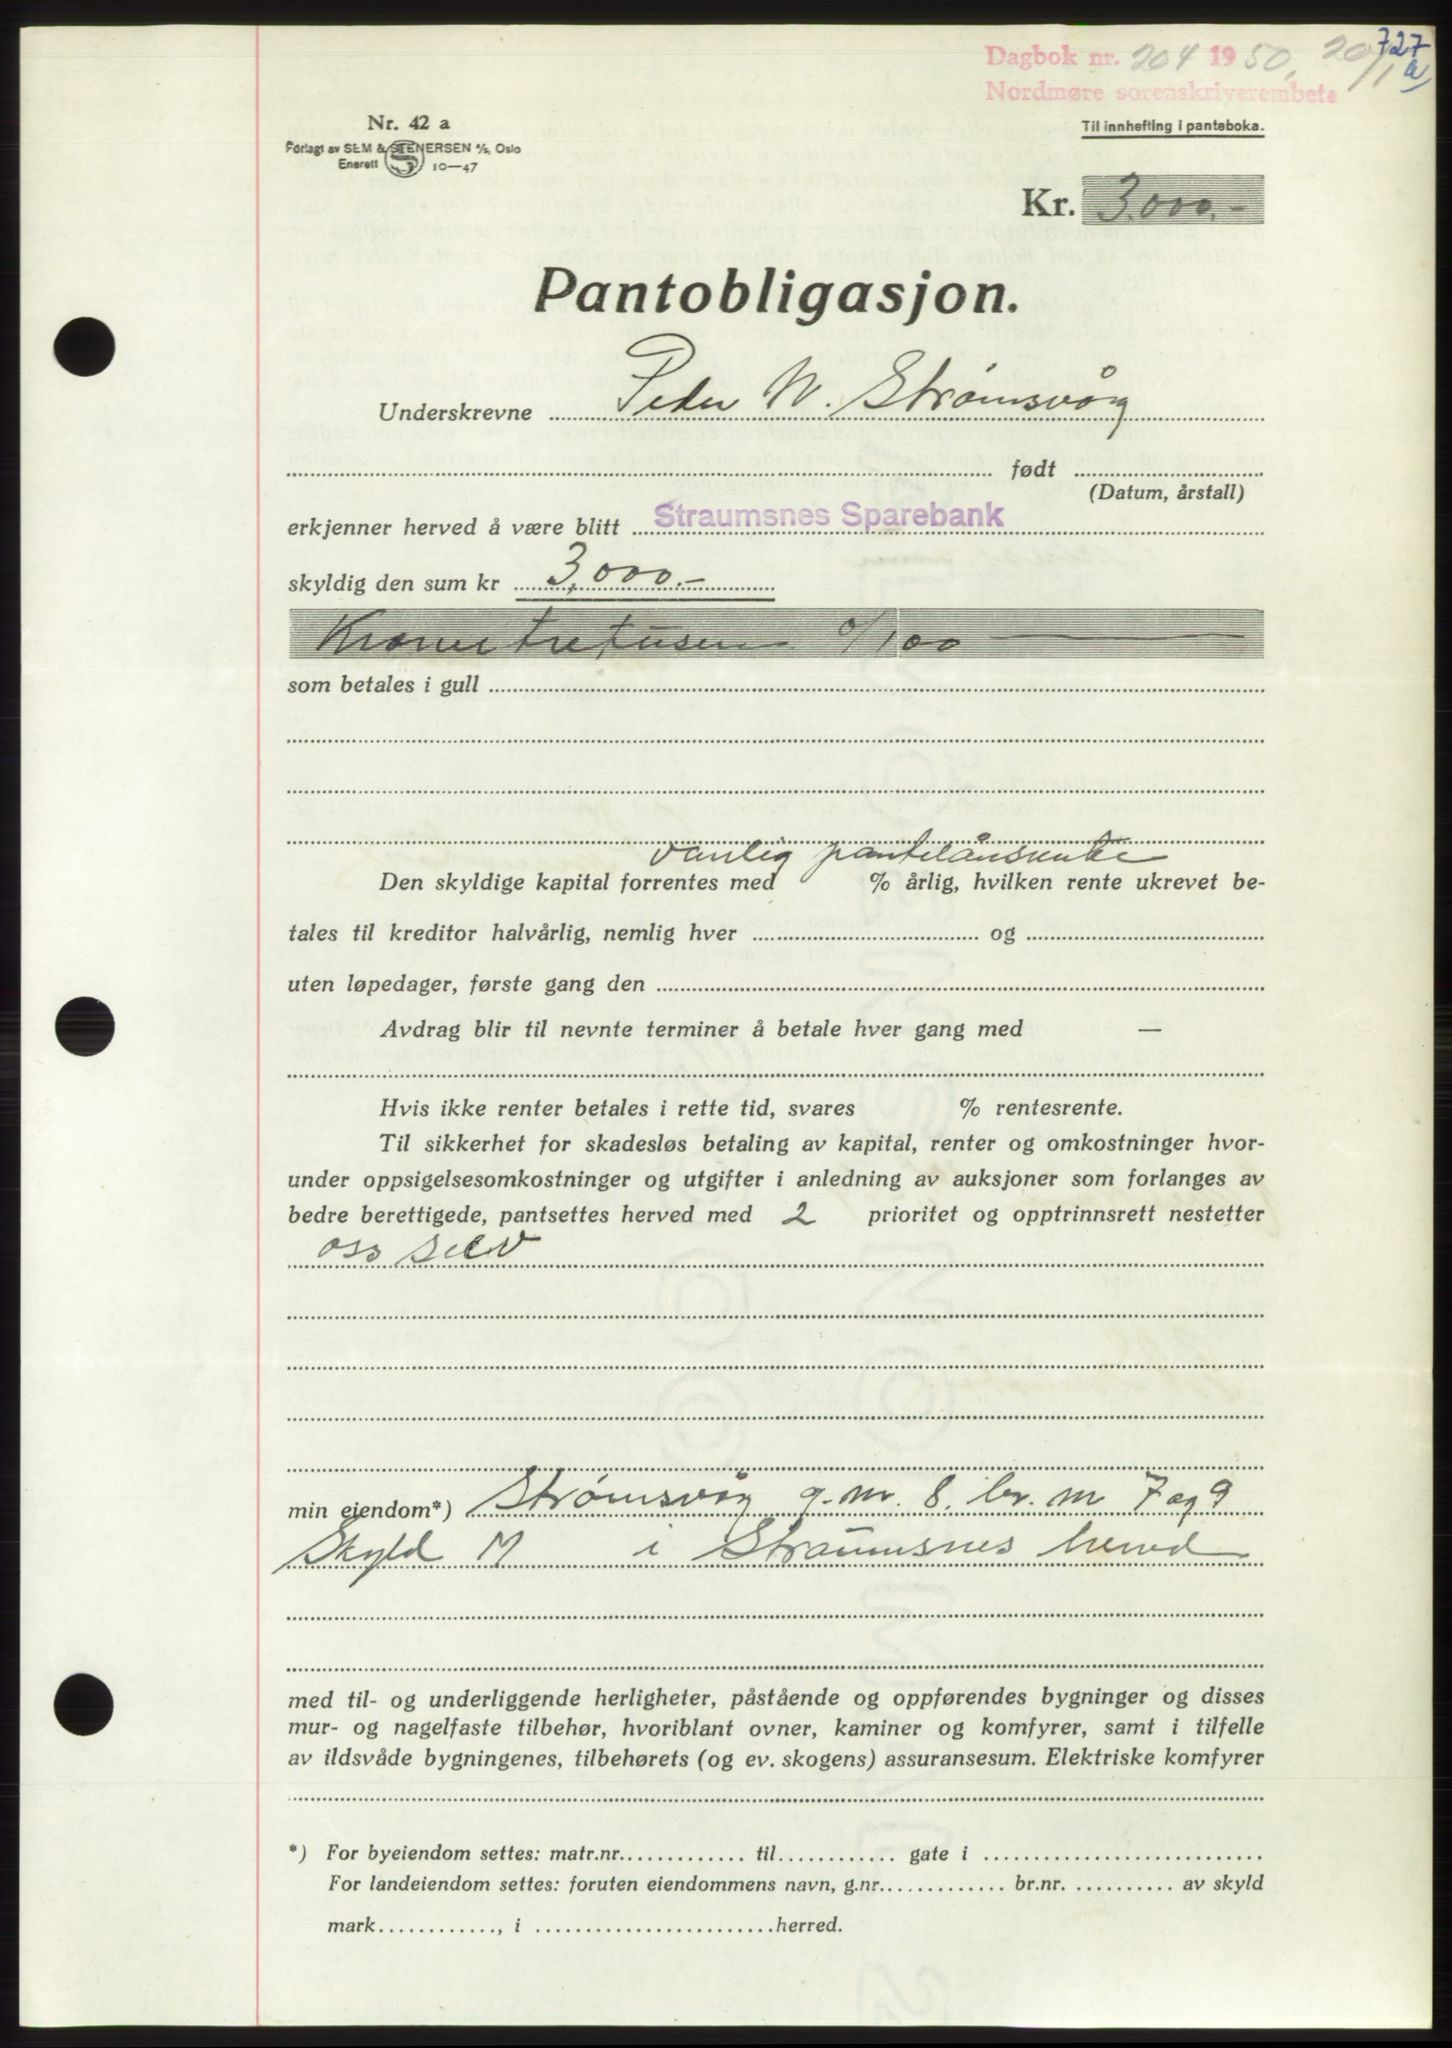 727
a
Dagbok nr. 204 1950, 20/1
Nordmøre sorenskriverembete
Nr. 42 a
Til innhefting i panteboka.
Forlagt av SEM & STENERSEN A/S, Oslo
Enerett S 10—47
Kr. 3.000.-
Pantobligasjon.
Underskrevne Peder W. Strømsvåg
født
(Datum, årstall)
erkjenner herved å være blitt Straumsnes Sparebank
skyldig den sum kr 3,000.-
Kroner tretusen 0/100
som betales i gull
vanlig pantelånsrente
Den skyldige kapital forrentes med % årlig, hvilken rente ukrevet be-
tales til kreditor halvårlig, nemlig hver og
uten løpedager, første gang den
Avdrag blir til nevnte terminer å betale hver gang med —
Hvis ikke renter betales i rette tid, svares % rentesrente.
Til sikkerhet for skadesløs betaling av kapital, renter og omkostninger hvor-
under oppsigelsesomkostninger og utgifter i anledning av auksjoner som forlanges av
bedre berettigede, pantsettes herved med 2 prioritet og opptrinnsrett nestetter
oss selv
min eiendom*) Strømsvåg g.nr. 8. br. nr 7 og 9
Skyld M i Straumsnes herred
med til- og underliggende herligheter, påstående og oppførendes bygninger og disses
mur- og nagelfaste tilbehør, hvoriblant ovner, kaminer og komfyrer, samt i tilfelle
av ildsvåde bygningenes, tilbehørets (og ev. skogens) assuransesum. Elektriske komfyrer
*) For byeiendom settes: matr.nr. til gate i
For landeiendom settes: foruten eiendommens navn, g.nr. br.nr. av skyld
mark , i herred.